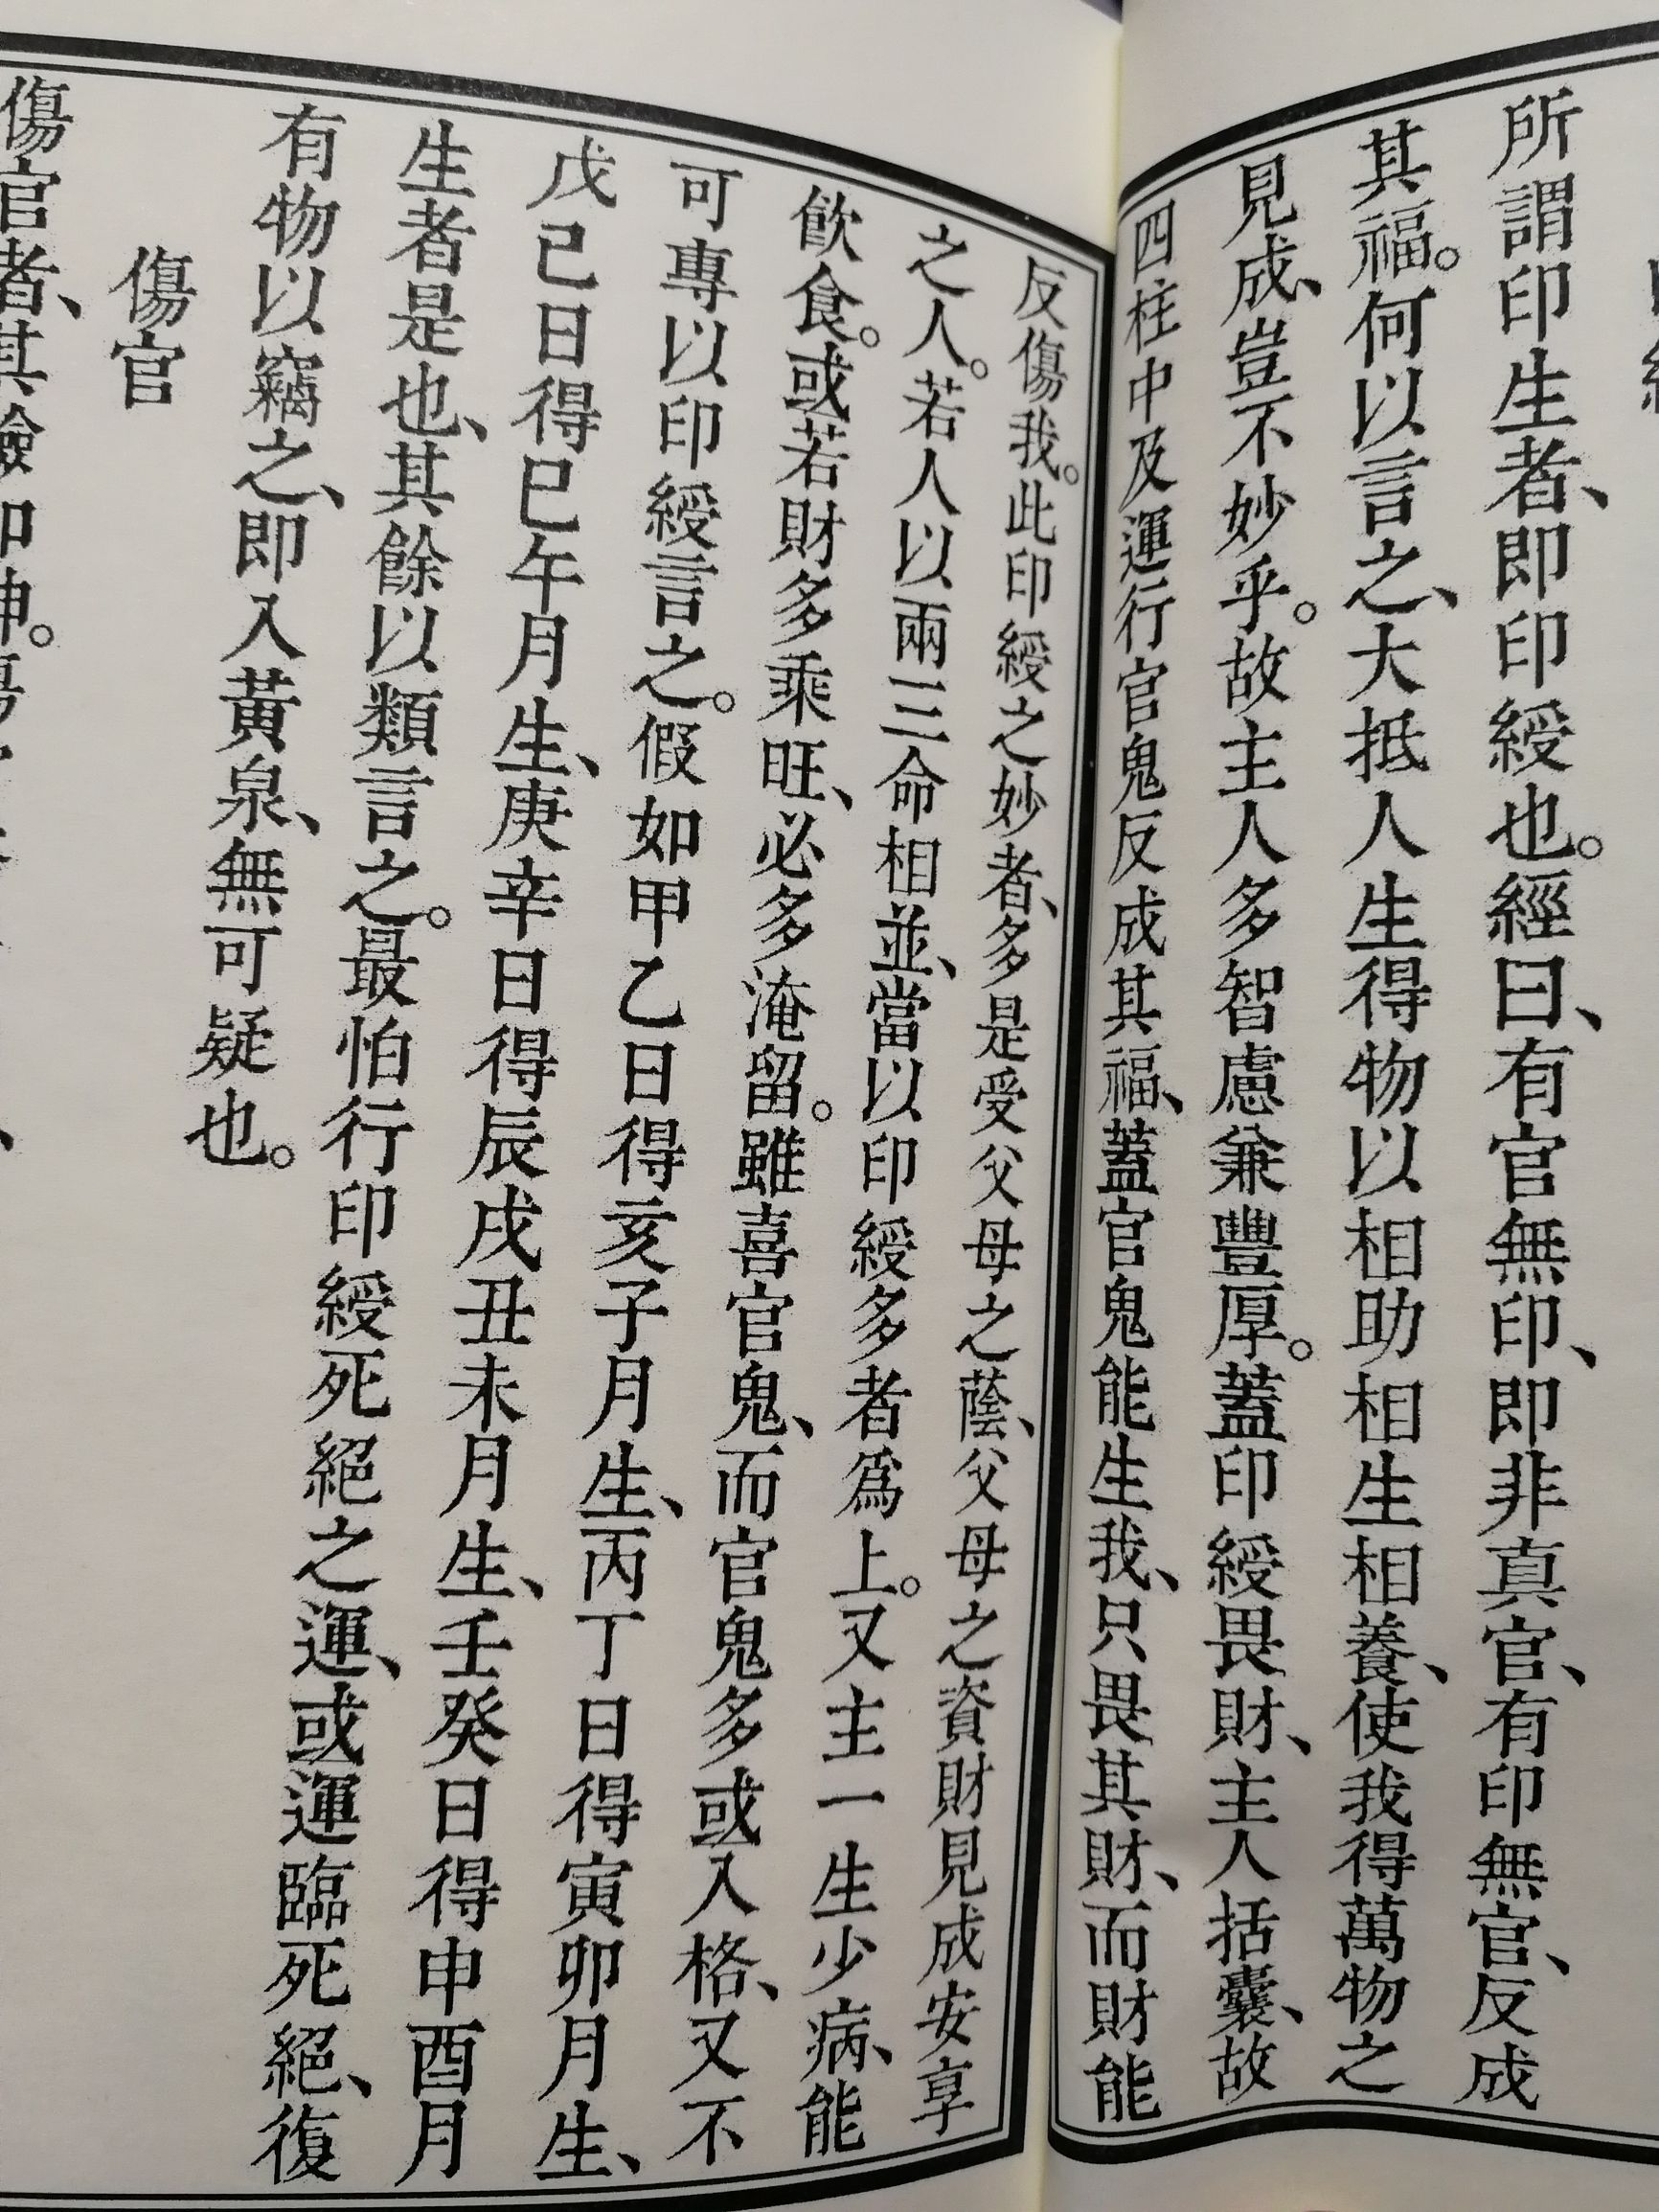 所謂印生者、即印綬也。經曰、有官無印、即非真官、有印無官、反成
其福。何以言之、大抵人生得物以相助相生相養、使我得萬物之
見成、豈不妙乎。故主人多智慮兼豐厚。蓋印綬畏財、主人括囊、故
四柱中及運行官鬼反成其福、蓋官鬼能生我、只畏其財、而財能
反傷我。此印綬之妙者、多是受父母之蔭、父母之資財見成安享
之人。若人以兩三命相並、當以印綬多者爲上。又主一生少病、能
飲食。或若財多乘旺、必多淹留。雖喜官鬼、而官鬼多或入格、又不
可專以印綬言之。假如甲乙日得亥子月生、丙丁日得寅卯月生、
戊己日得巳午月生、庚辛日得辰戌丑未月生、壬癸日得申酉月
生者是也、其餘以類言之。最怕行印綬死絕之運、或運臨死絕、復
有物以竊之、即入黃泉、無可疑也。
傷官
傷官者、其驗如神。